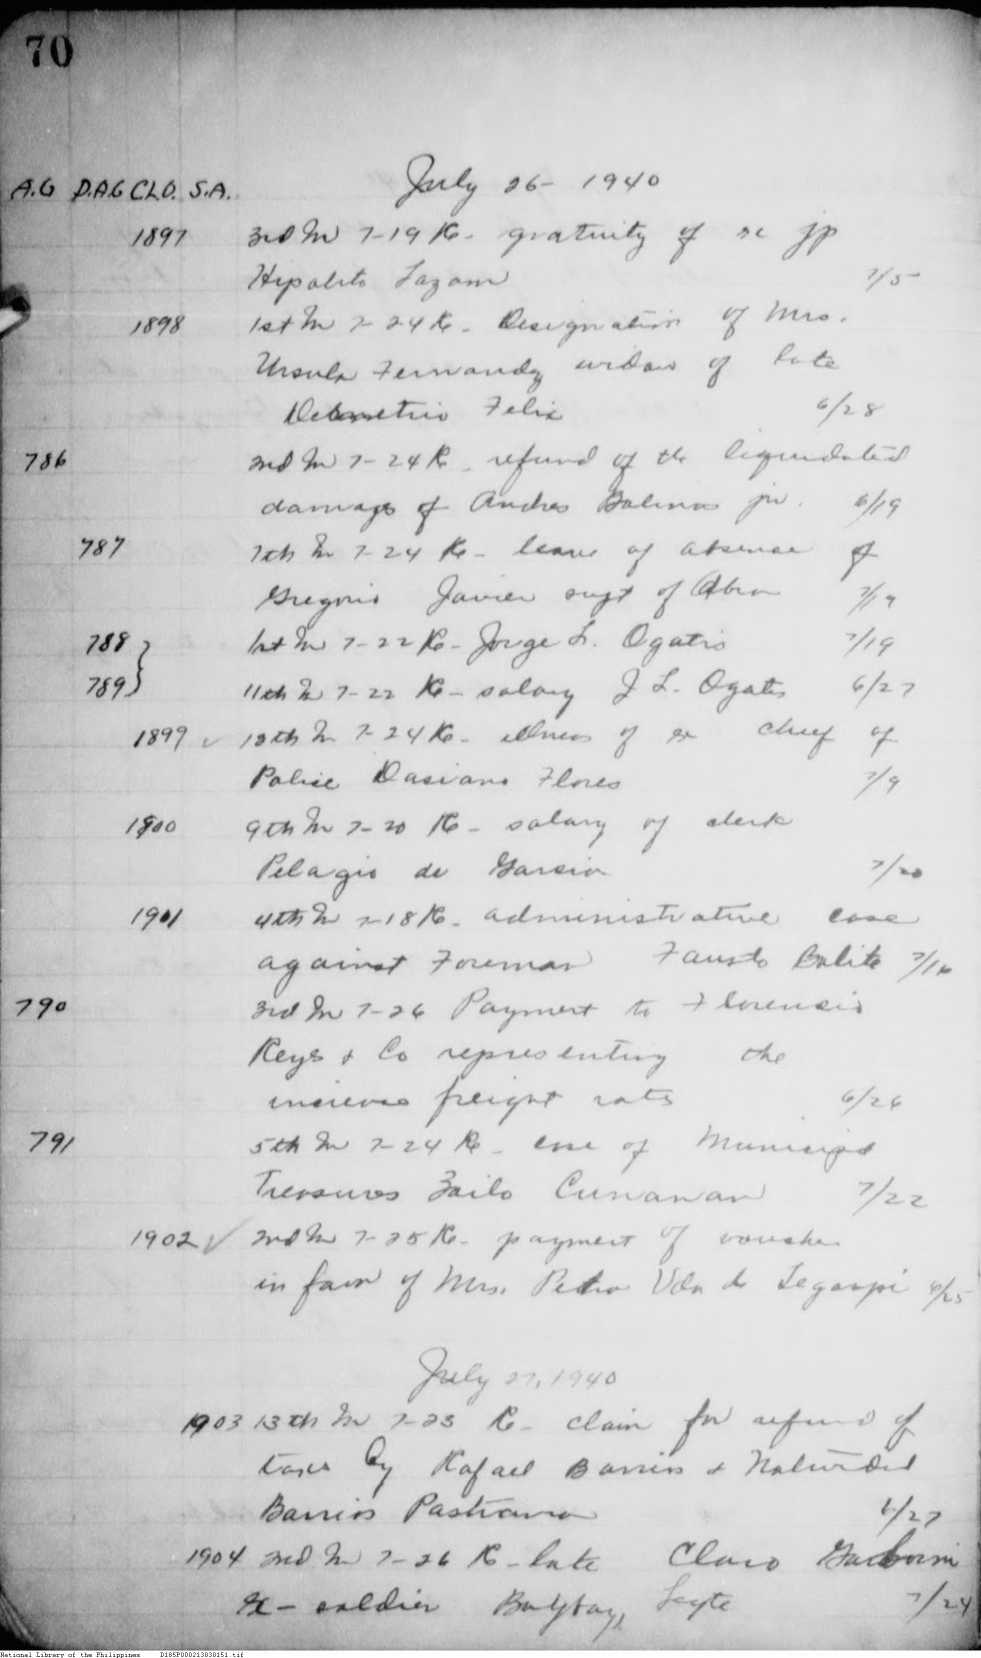 70
July 26 - 1940
A.G D.A.G CLO. S.A.
1897 3rd In 7-19 R - gratuity of re jp
Hipolito Lazam 7/5
1898 1st In 7-24 R - Designation of Mrs.
Ursula Fernandez widow of late
Demetrio Felix 6/28
786 2nd In 7-24 R - refund of the liquidated
damages of Andres Galinas jr. 6/19
787 7th In 7-24 R - leave of absence of
Gregorio Javier supt of Abra 7/19
788 1st In 7-22 R - Jorge L. Ogatis 7/19
789 11th In 7-22 R - salary J L. Ogatis 6/27
1899 ✓ 13th In 7-24 R - illness of ex chief of
Police Dasiano Flores 7/9
1900 9th In 7-20 R - salary of clerk
Pelagio de Garcia 7/20
1901 4th In 7-18 R - administrative case
against Foreman Fausto Balite 7/16
790 3rd In 7-26 Payment to Florencio
Reyes & Co representing the
increase freight rates 6/26
791 5th In 7-24 R - case of Municipal
Treasurer Zoilo Cunanan 7/22
1902 ✓ 2nd In 7-25 R - payment of voucher
in favor of Mrs. Pedro Vda de Legaspi 6/25
July 27, 1940
1903 13th In 7-23 R - claim for refund of
taxes by Rafael Barrios & Natividad
Barrios Pastrana 6/27
1904 2nd In 7-26 R - late Claro
Ex - soldier Baybay, Leyte 7/24
National Library of the Philippines D185P000213830151.tif